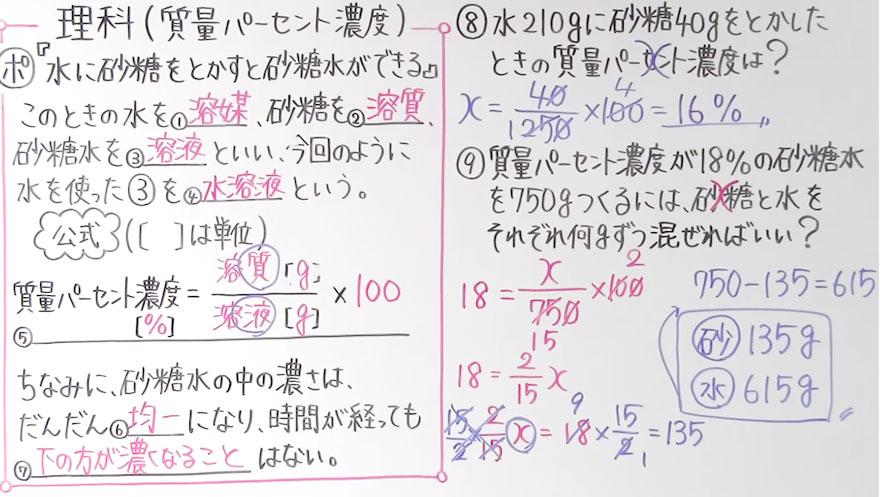 理科(質量パーセント濃度)
ポ『水に砂糖をとかすと砂糖水ができる』
このときの水を①溶媒、砂糖を②溶質、
砂糖水を③溶液といい、今回のように
水を使った③を④水溶液という。
公式 ([ ]は単位)
質量パーセント濃度[%] = 溶質[g] / 溶液[g] × 100
⑤
ちなみに、砂糖水の中の濃さは、
だんだん⑥均一になり、時間が経っても
⑦下の方が濃くなることはない。
⑧水210gに砂糖40gをとかした
ときの質量パーセント濃度は?
x = 40/250 × 100 = 16%
⑨質量パーセント濃度が18%の砂糖水
を750gつくるには、砂糖と水を
それぞれ何gずつ混ぜればいい?
18 = x/750 × 100
2
15
750-135=615
18 = 2/15 x
砂 135g
水 615g
15/2 × 2/15 x = 18 × 15/2 = 135
9
1